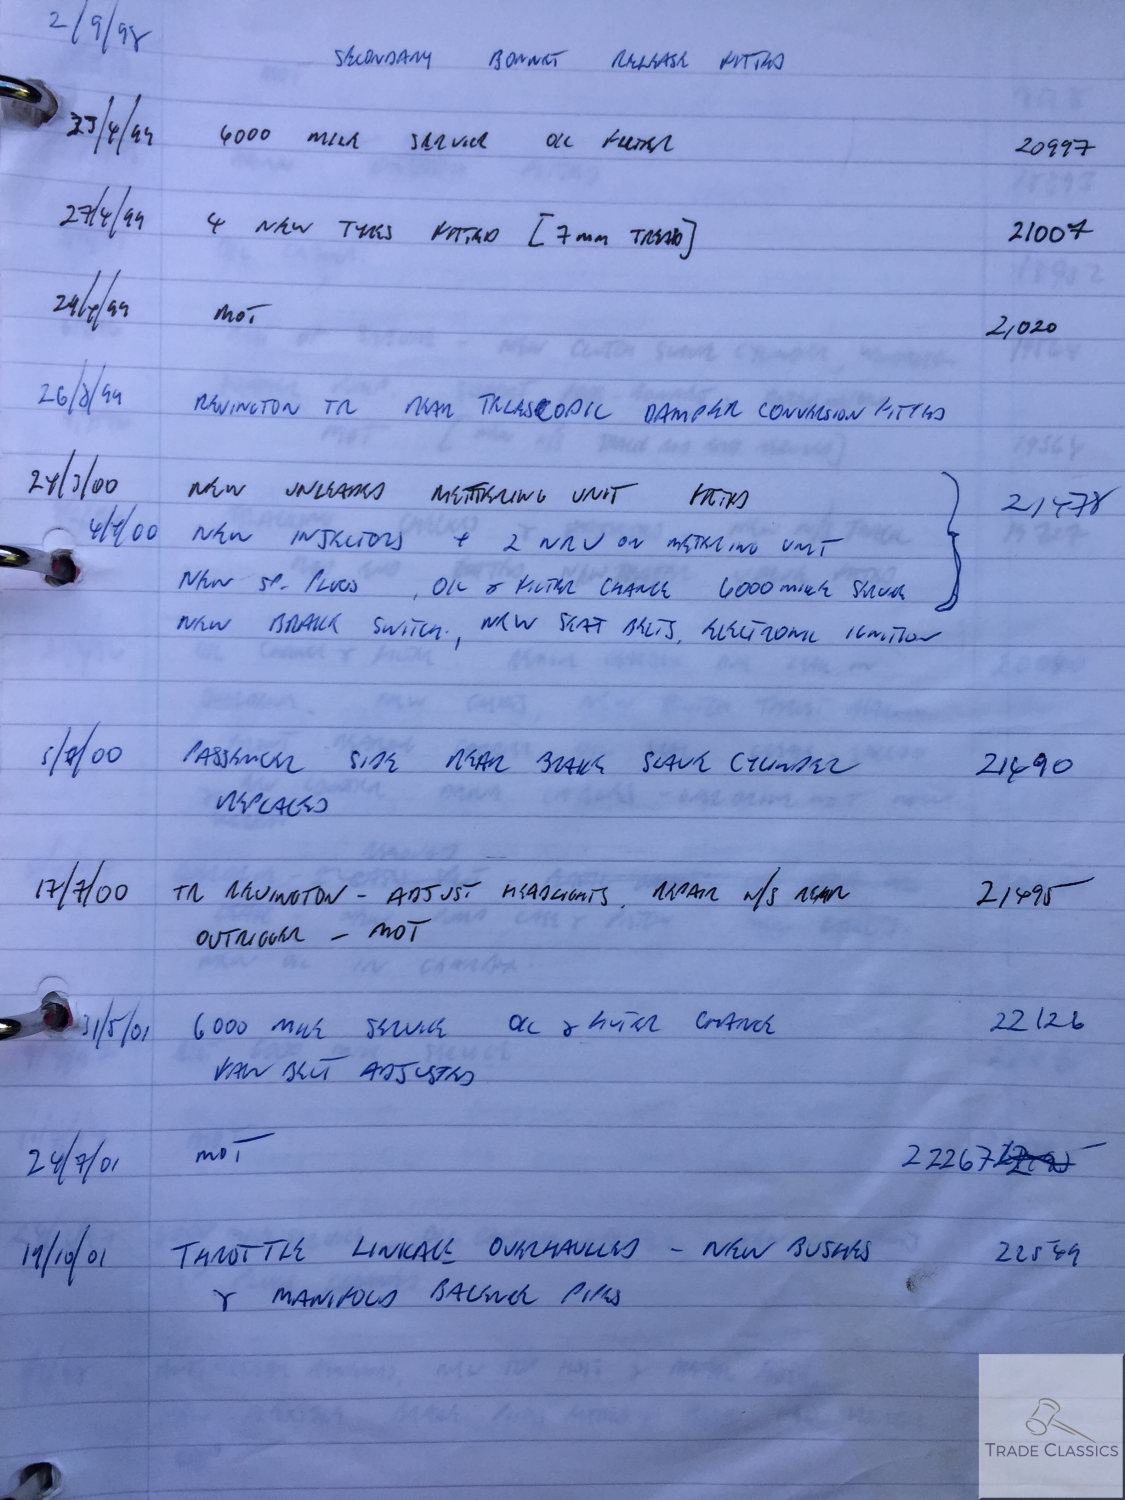 2/9/98
SECONDARY BONNET RELEASE FITTED
23/4/99 6000 MILE SERVICE OIL FILTER 20997
27/4/99 4 NEW TYRES FITTED [7mm TREAD] 21007
29/4/99 MOT 21,020
26/8/99 REVINGTON TR REAR TELESCOPIC DAMPER CONVERSION FITTED
24/3/00 NEW UNLEADED METERING UNIT FITTED 21478
4/4/00 NEW INJECTORS + 2 NRV ON METERING UNIT
NEW SP. PLUGS, OIL & FILTER CHANGE 6000 MILE SERVICE
NEW BRAKE SWITCH, NEW SEAT BELTS, ELECTRONIC IGNITION
5/7/00 PASSENGER SIDE REAR BRAKE SLAVE CYLINDER 21490
REPLACED
17/7/00 TR REVINGTON - ADJUST HEADLIGHTS, REPAIR N/S REAR 21495
OUTRIGGER - MOT
31/5/01 6000 MILE SERVICE OIL & FILTER CHANGE 22126
FAN BELT ADJUSTED
24/7/01 MOT 22267
19/10/01 THROTTLE LINKAGE OVERHAULED - NEW BUSHES 22549
& MANIFOLD BALANCE PIPES
TRADE CLASSICS